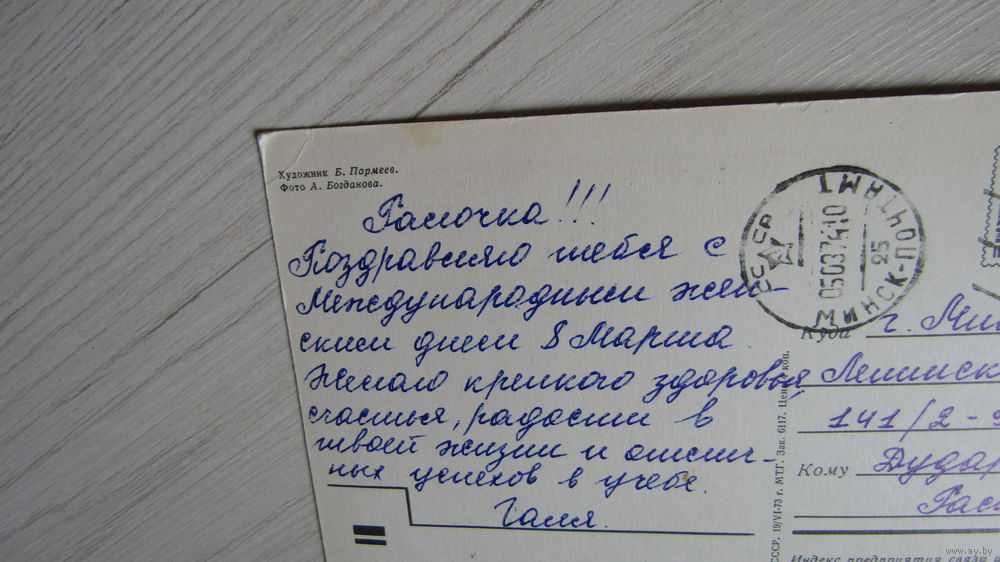 Художник Б. Пармеев.
Фото А. Богданова.
Галочка!!!
Поздравляю тебя с
Международным жен-
ским днем 8 Марта.
Желаю крепкого здоровья,
счастья, радости в
твоей жизни и отлич-
ных успехов в учебе.
Галя.
СССР
МИНСК-ПОЧТАМТ
25
Куда
г. Мин
Ленинск
141/2-
Кому
Дудар
Гал
СССР. 19/VI-73 г. МТГ. Зак. 6117. Цена коп.
Индекс предприятия связи
www.ay.by